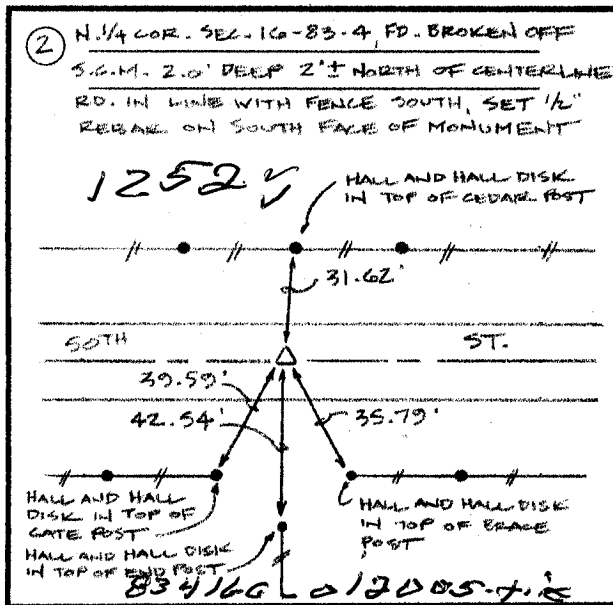 2 N. 1/4 COR. SEC. 16-83-4, FD. BROKEN OFF
S.G.M. 2.0' DEEP 2'± NORTH OF CENTERLINE
RD. IN LINE WITH FENCE SOUTH, SET 1/2"
REBAR ON SOUTH FACE OF MONUMENT
1252
HALL AND HALL DISK
IN TOP OF CEDAR POST
31.62'
50TH ST.
39.59'
42.54'
35.79'
HALL AND HALL
DISK IN TOP OF
GATE POST
HALL AND HALL DISK
IN TOP OF BRACE
POST
HALL AND HALL DISK
IN TOP OF END POST